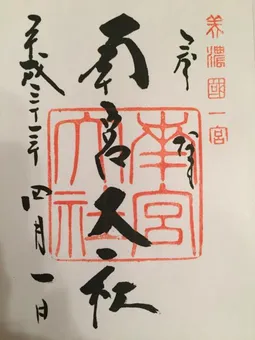 美濃國一宮
奉拝
南宮大社
南宮
大社
平成三十一年四月一日